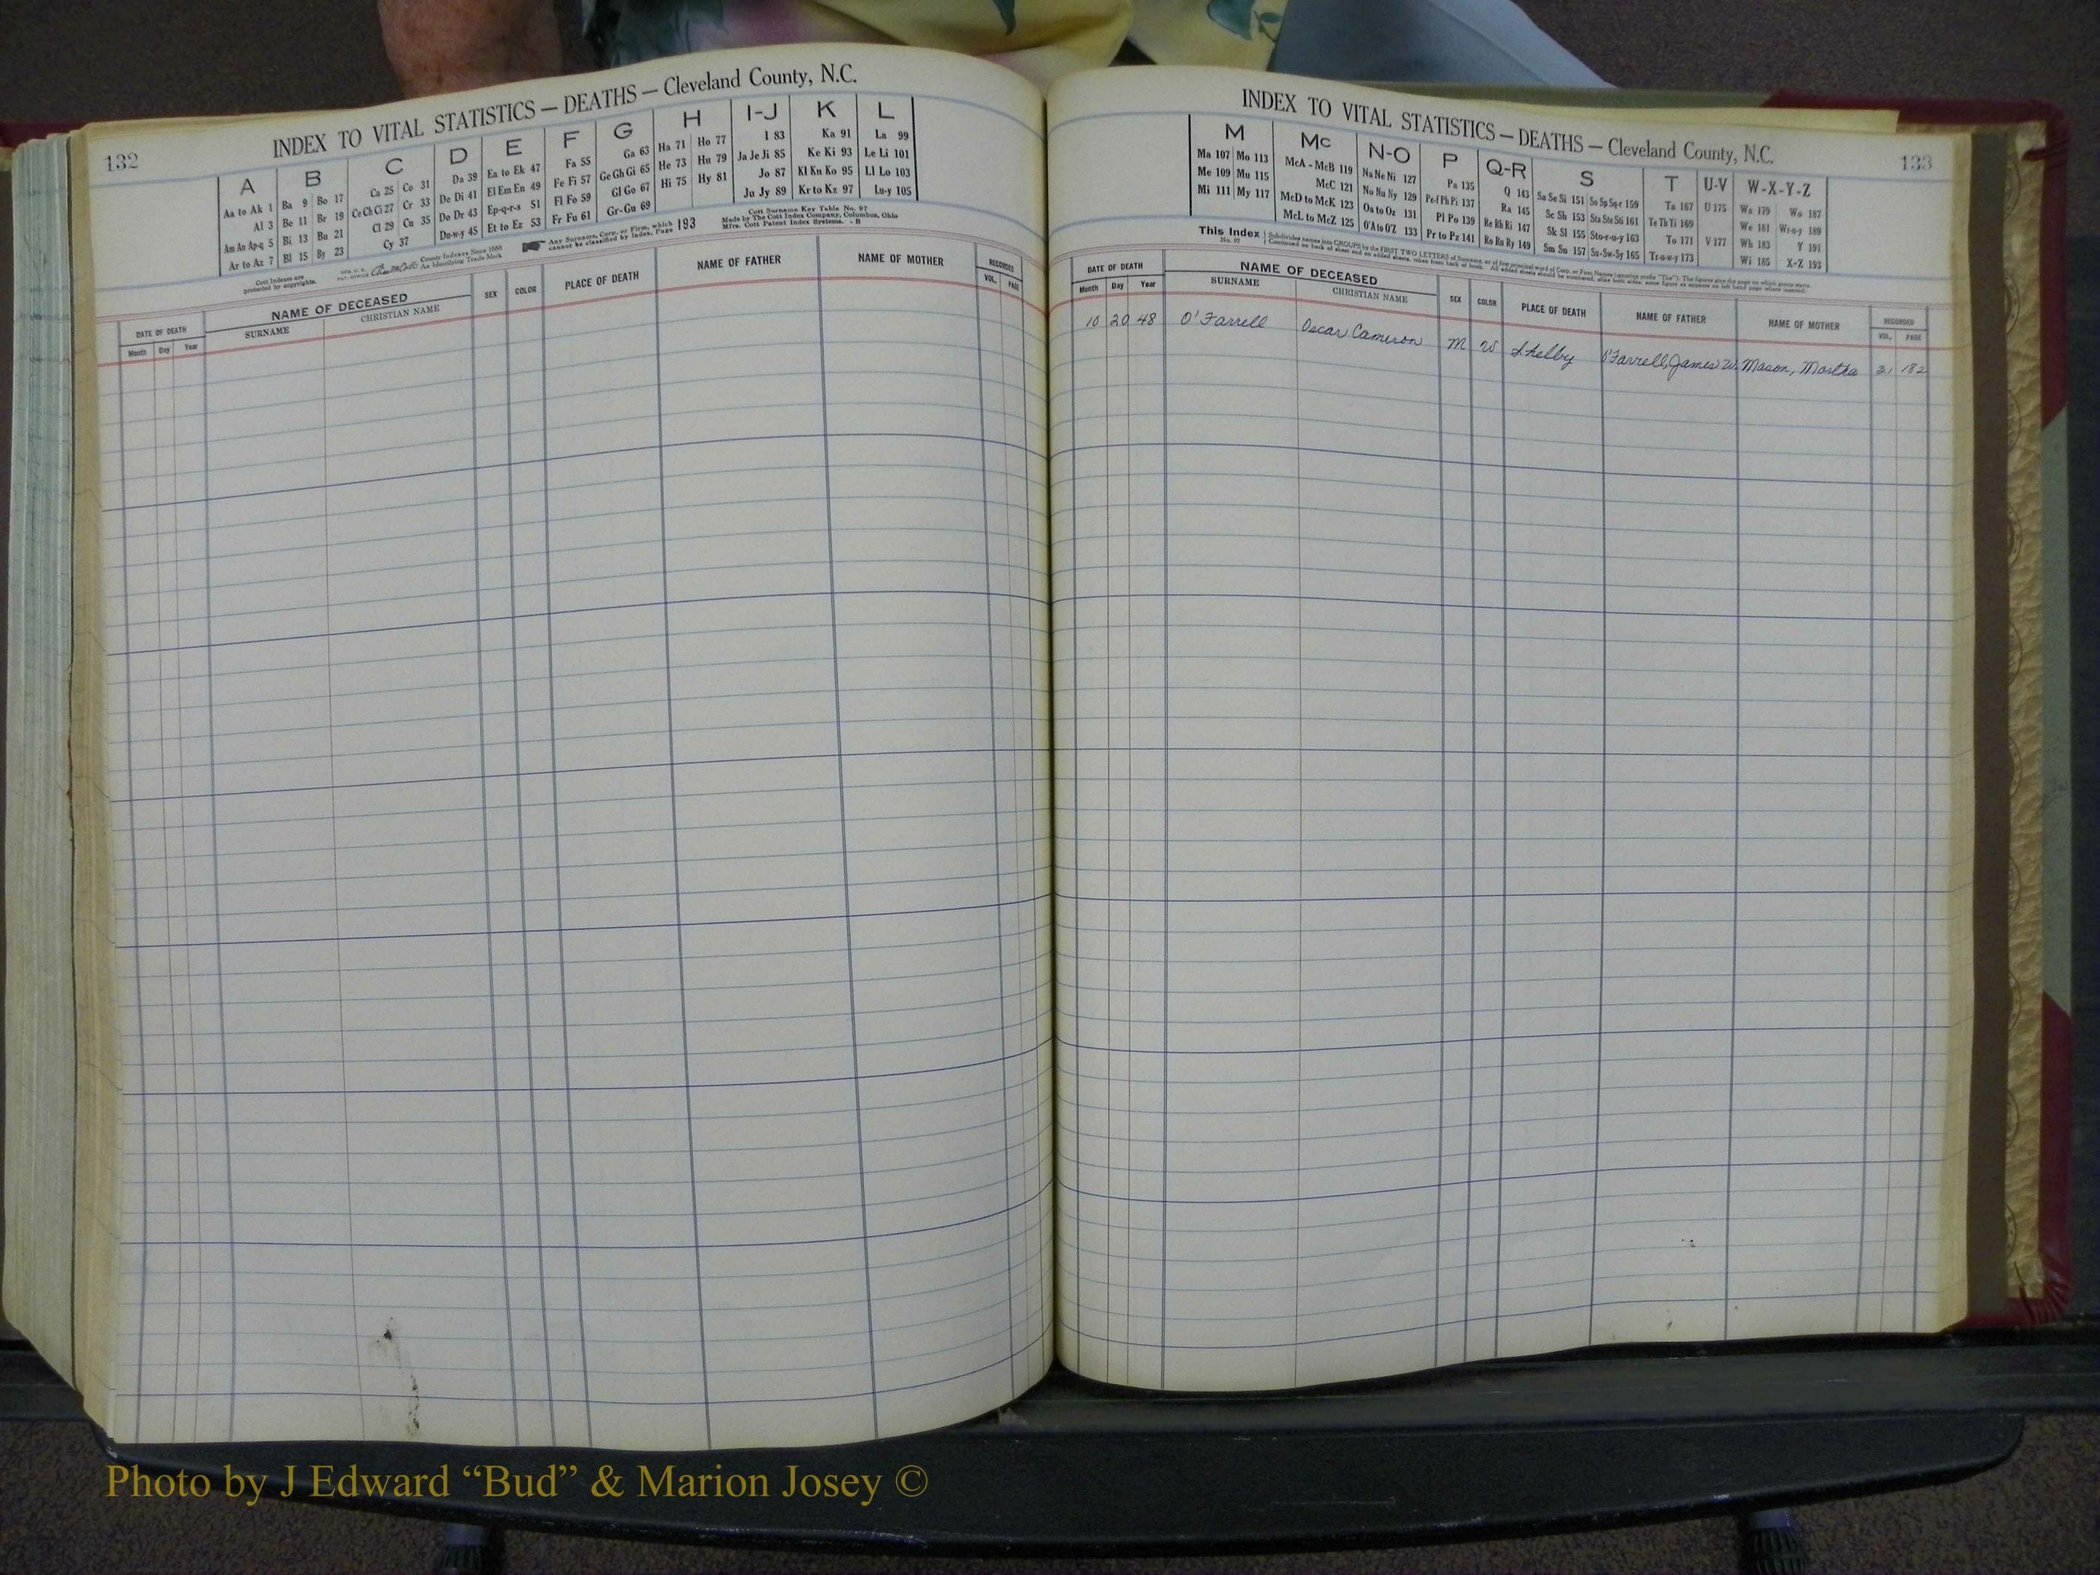 132
INDEX TO VITAL STATISTICS — DEATHS — Cleveland County, N.C.
A
Aa to Ak 1
Al 3
Am An Ap-q 5
Ar to Az 7
B
Ba 9 Bo 17
Be 11 Br 19
Bi 13 Bu 21
Bl 15 By 23
C
Ca 25 Co 31
Ce Ch Ci 27 Cr 33
Cl 29 Cu 35
Cy 37
D
Da 39
De Di 41
Do Dr 43
Du-w-y 45
E
Ea to Ek 47
El Em En 49
Ep-q-r-s 51
Et to Ez 53
F
Fa 55
Fe Fi 57
Fl Fo 59
Fr Fu 61
G
Ga 63
Ge Gh Gi 65
Gl Go 67
Gr-Gu 69
H
Ha 71 Ho 77
He 73 Hu 79
Hi 75 Hy 81
I-J
I 83
Ja Je Ji 85
Jo 87
Ju Jy 89
K
Ka 91
Ke Ki 93
Kl Kn Ko 95
Kr to Kz 97
L
La 99
Le Li 101
Ll Lo 103
Lu-y 105
Cott Indexes are
protected by copyrights.
County Indexes Since 1888
An Identifying Trade Mark
Any Surname, Corp. or Firm, which
cannot be classified by Index, Page 193
Cott Surname Key Table No. 97
Made by The Cott Index Company, Columbus, Ohio
Mfrs. Cott Patent Index Systems. - B
DATE OF DEATH
Month Day Year
NAME OF DECEASED
SURNAME
CHRISTIAN NAME
SEX
COLOR
PLACE OF DEATH
NAME OF FATHER
NAME OF MOTHER
RECORDED
VOL. PAGE
INDEX TO VITAL STATISTICS — DEATHS — Cleveland County, N.C.
133
M
Ma 107 Mo 113
Me 109 Mu 115
Mi 111 My 117
Mc
McA - McB 119
McC 121
McD to McK 123
McL to McZ 125
N-O
Na Ne Ni 127
No Nu Ny 129
Oa to Oz 131
O'A to O'Z 133
P
Pa 135
Pe-f Ph Pi 137
Pl Po 139
Pr to Pz 141
Q-R
Q 143
Ra 145
Re Rh Ri 147
Ro Ru Ry 149
S
Sa Se Si 151 So Sp Sq-r 159
Sc Sh 153 Sta Ste Sti 161
Sk Sl 155 Sto-r-u-y 163
Sm Sn 157 Su-Sw-Sy 165
T
Ta 167
Te Th Ti 169
To 171
Tr-u-w-y 173
U-V
U 175
V 177
W-X-Y-Z
Wa 179 Wo 187
We 181 Wr-u-y 189
Wh 183 Y 191
Wi 185 X-Z 193
This Index
No. 97
Subdivides names into GROUPS by the FIRST TWO LETTERS of Surname, or of first principal word of Corp. or Firm Names (ignoring prefix "The").
DATE OF DEATH
Month Day Year
NAME OF DECEASED
SURNAME
CHRISTIAN NAME
SEX
COLOR
PLACE OF DEATH
NAME OF FATHER
NAME OF MOTHER
RECORDED
VOL. PAGE
10 20 48 O'Farrell Oscar Cameron M W Shelby O'Farrell, James W. Mason, Martha 31 182
Photo by J Edward “Bud” & Marion Josey ©